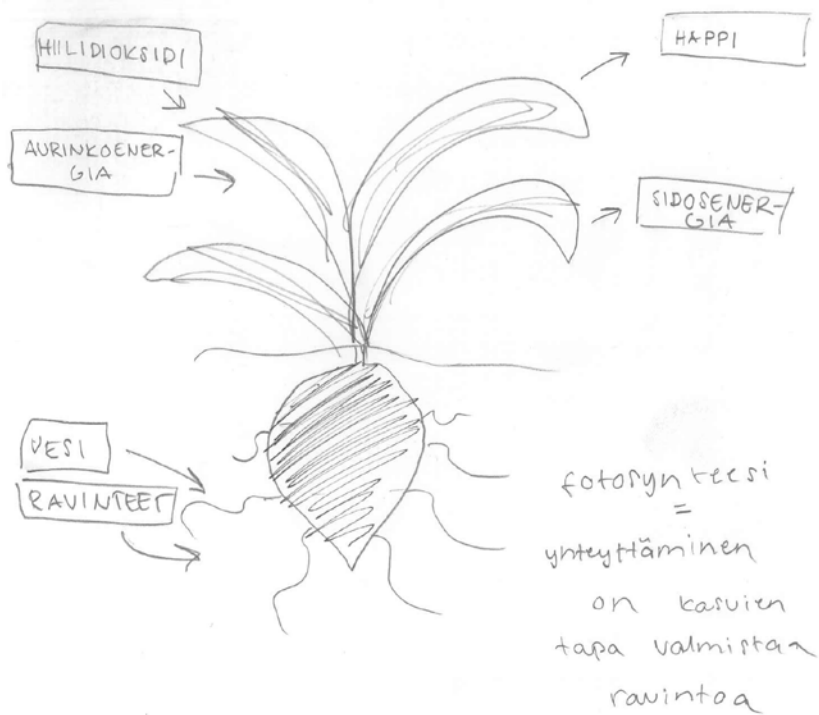 HIILIDIOKSIDI
HAPPI
AURINKOENER-
GIA
SIDOSENER-
GIA
VESI
RAVINTEET
fotosynteesi
=
yhteyttäminen
on kasvien
tapa valmistaa
ravintoa